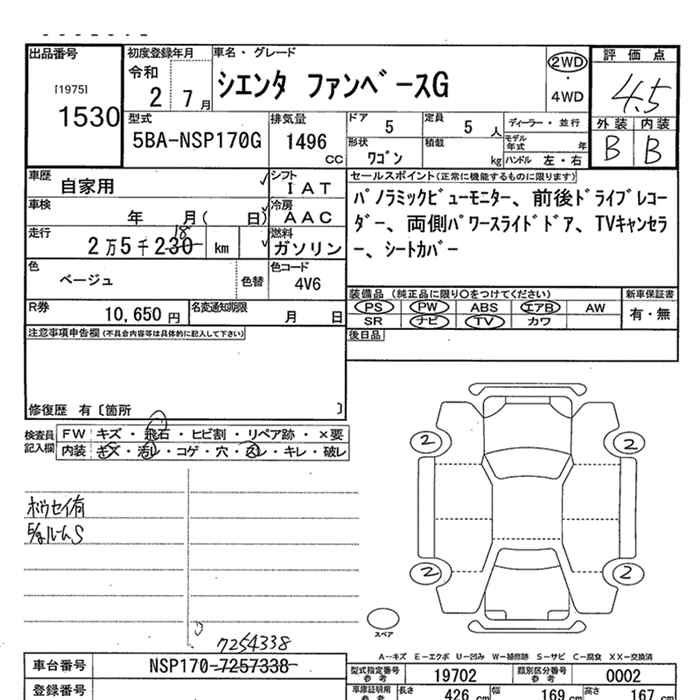 出品番号 初度登録年月 車名・グレード 評価点
[1975] 令和 シエンタ ファンベースG 2WD ・ 4WD 4.5
1530 2 7月
型式 排気量 ドア 定員 ディーラー・並行 外装 内装
5BA-NSP170G 1496 CC 5 5人 モデル年式 年 B B
形状 積載 ワゴン kg ハンドル 左・右
車歴 自家用 シフト IAT セールスポイント(正常に機能するものに限ります)
車検 年 月( 日) 冷房 AAC パノラミックビューモニター、前後ドライブレコ
走行 18 ーダー、両側パワースライドドア、TVキャンセラ
2万5千230 km 燃料 ガソリン ー、シートカバー
色 ベージュ 色替 色コード 4V6
装備品 (純正品に限り○をつけてください) 新車保証書
R券 10,650円 名変通知期限 月 日 PS PW ABS エアB AW 有・無
SR ナビ TV カワ
注意事項申告欄(不具合内容等は具体的に記入して下さい) 後日品
修復歴 有〔箇所 〕
検査員記入欄 FW キズ・飛石・ヒビ割・リペア跡・×要
内装 キズ・汚レ・コゲ・穴・スレ・キレ・破レ
2 2
ホウセイ有
2 2
スペア
7254338
A―キズ E―エクボ U―凹み W―補修跡 S―サビ C―腐食 XX―交換済
車台番号 NSP170-7257338 型式指定番号 参考 19702 類別区分番号 参考 0002
登録番号 車庫証明用 参考 長さ 426 cm 幅 169 cm 高さ 167 cm